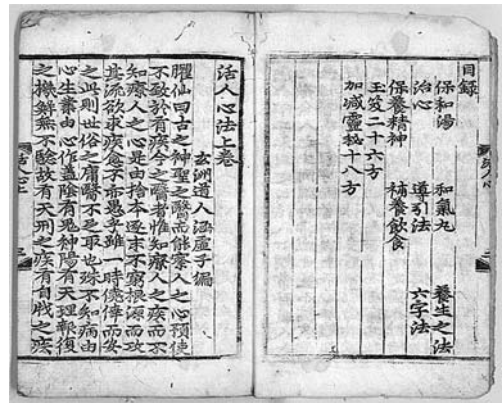 目録
保和湯 和氣丸 養生之法
治心 導引法 六字法
保養精神 補養飲食
玉笈二十六方
加減靈秘十八方
活人心法上卷
玄洲道人涵虛子編
臞仙曰古之神聖之醫而能療人之心預使
不致於有疾今之醫者惟知療人之疾而不
知療人之心是由捨本逐末不窮根源而攻
其流欲求疾愈不亦愚乎雖一時僥倖而安
之此則世俗之庸醫不足取也殊不知病由
心生業由心作盖陰有鬼神陽有天理報復
之機鮮無不驗故有天刑之疾有自戕之疾